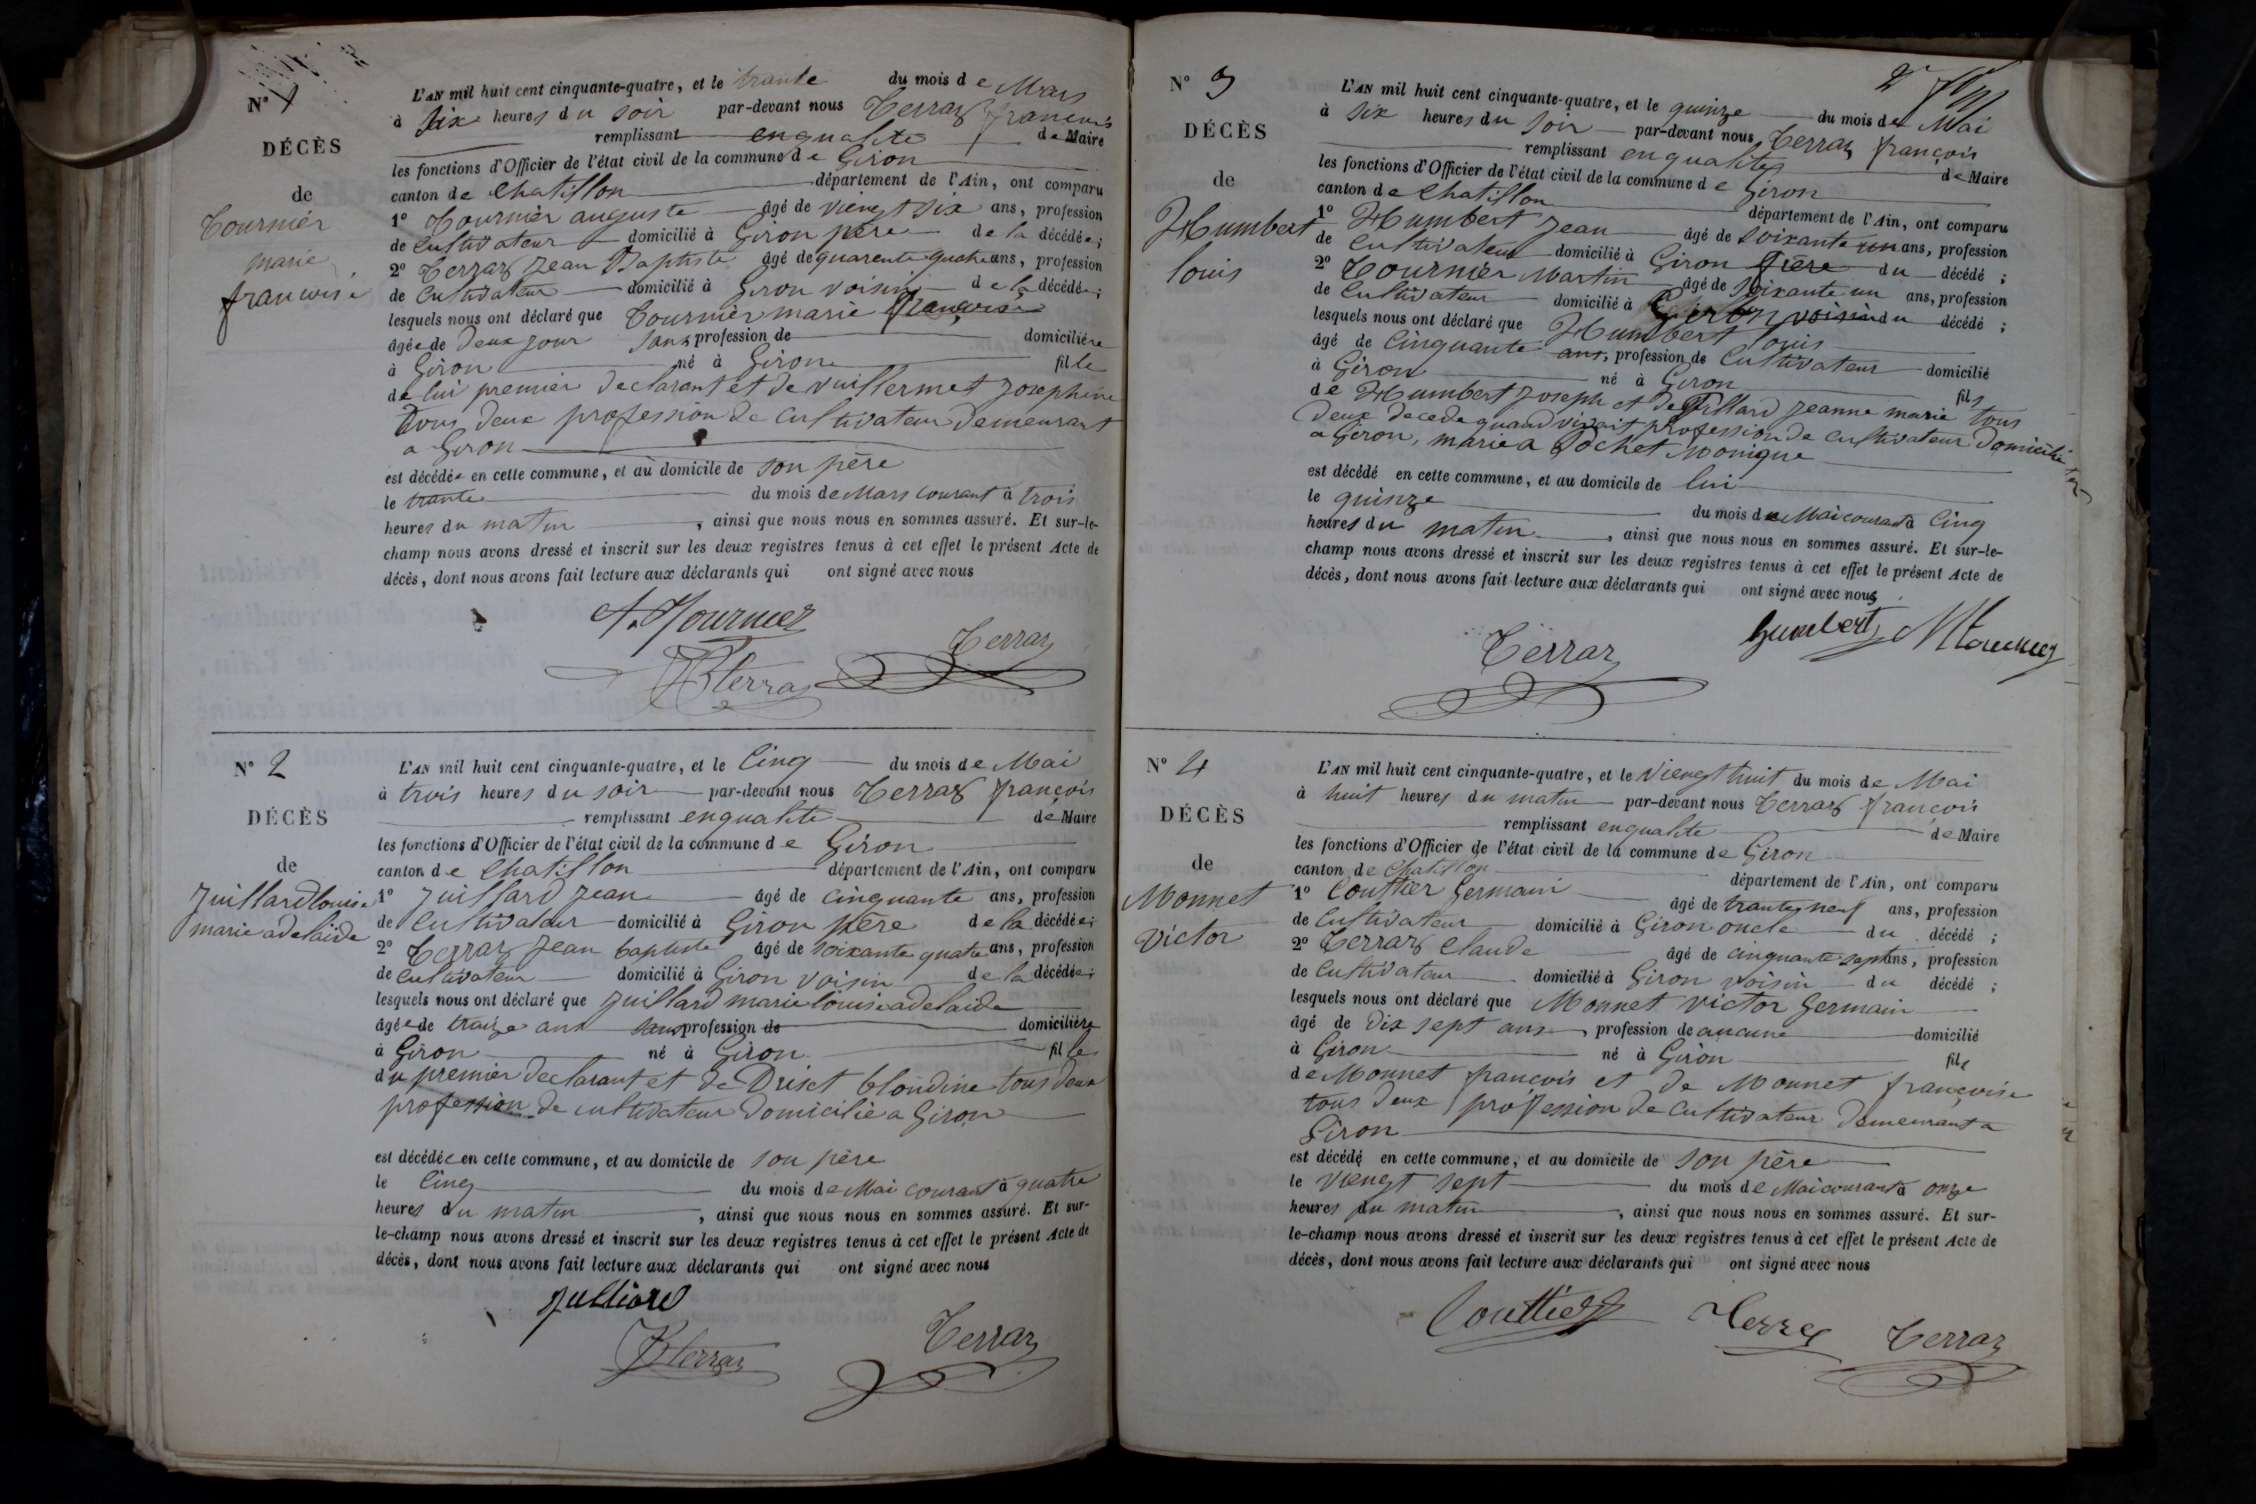 N° 1
DÉCÈS
de
Tournier
marie
francoise
L'AN mil huit cent cinquante-quatre, et le trante du mois de Mars
à six heures du soir par-devant nous Terraz françois
remplissant enqualité de Maire
les fonctions d'Officier de l'état civil de la commune de Giron
canton de Chatillon département de l'Ain, ont comparu
1° Tournier auguste âgé de viengt six ans, profession
de Cultivateur domicilié à Giron père de la décédée;
2° Terraz Jean Baptiste âgé de quarente quatre ans, profession
de Cultivateur domicilié à Giron voisin de la décédée;
lesquels nous ont déclaré que Tournier marie françoise
âgée de Deux jour sans profession de domiciliée
à Giron né à Giron fille
de lui premier declarant et de Vuillermet Josephine
Tous deux profession de Cultivateur Demeurant
a Giron
est décédée en cette commune, et au domicile de son père
le trante du mois de Mars courant à trois
heures du matin , ainsi que nous nous en sommes assuré. Et sur-le-
champ nous avons dressé et inscrit sur les deux registres tenus à cet effet le présent Acte de
décès, dont nous avons fait lecture aux déclarants qui ont signé avec nous
A. Tournier
Terraz
JBterraz
N° 2
DÉCÈS
de
Juillard louise
marie adelaide
L'AN mil huit cent cinquante-quatre, et le Cinq du mois de Mai
à trois heures du soir par-devant nous Terraz françois
remplissant enqualité de Maire
les fonctions d'Officier de l'état civil de la commune de Giron
canton de Chatillon département de l'Ain, ont comparu
1° Juillard Jean âgé de cinquante ans, profession
de Cultivateur domicilié à Giron père de la décédée;
2° Terraz Jean baptiste âgé de soixante quatre ans, profession
de Cultivateur domicilié à Giron voisin de la décédée;
lesquels nous ont déclaré que Juillard marie louise adelaide
âgée de traize ans sans profession de domiciliée
à Giron né à Giron fille
du premier declarant et de Driset blondine tous deux
profession de cultivateur Domicilié a Giron
est décédée en cette commune, et au domicile de son père
le Cinq du mois de Mai courant à quatre
heures du matin , ainsi que nous nous en sommes assuré. Et sur-
le-champ nous avons dressé et inscrit sur les deux registres tenus à cet effet le présent Acte de
décès, dont nous avons fait lecture aux déclarants qui ont signé avec nous
Julliard
JBterraz
Terraz
N° 3
DÉCÈS
de
Humbert
louis
L'AN mil huit cent cinquante-quatre, et le quinze du mois de Mai
à six heures du soir par-devant nous Terraz françois
remplissant enqualité de Maire
les fonctions d'Officier de l'état civil de la commune de Giron
canton de Chatillon département de l'Ain, ont comparu
1° Humbert Jean âgé de soixante un ans, profession
de Cultivateur domicilié à Giron frère du décédé;
2° Tournier Martin âgé de soixante un ans, profession
de Cultivateur domicilié à Giron voisin du décédé;
lesquels nous ont déclaré que Humbert louis
âgé de Cinquante ans, profession de Cultivateur domicilié
à Giron né à Giron fils
de Humbert Joseph et de Juillard Jeanne marie tous
Deux decede quand vivait profession de cultivateur Domicilié
a Giron, marie a Pochet Monique
est décédé en cette commune, et au domicile de lui
le quinze du mois de Mai courant à Cinq
heures du matin , ainsi que nous nous en sommes assuré. Et sur-le-
champ nous avons dressé et inscrit sur les deux registres tenus à cet effet le présent Acte de
décès, dont nous avons fait lecture aux déclarants qui ont signé avec nous
Terraz
humbert
M tournier
N° 4
DÉCÈS
de
Monnet
Victor
L'AN mil huit cent cinquante-quatre, et le Viengt huit du mois de Mai
à huit heures du matin par-devant nous Terraz françois
remplissant enqualité de Maire
les fonctions d'Officier de l'état civil de la commune de Giron
canton de Chatillon département de l'Ain, ont comparu
1° Couttier Germain âgé de trante neuf ans, profession
de Cultivateur domicilié à Giron oncle du décédé;
2° Terraz Claude âgé de cinquante sept ans, profession
de Cultivateur domicilié à Giron voisin du décédé;
lesquels nous ont déclaré que Monnet Victor Germain
âgé de Dix sept ans, profession de aucune domicilié
à Giron né à Giron fils
de Monnet françois et de Monnet françoise
tous deux profession de Cultivateur Demeurant a
Giron
est décédé en cette commune, et au domicile de son père
le viengt sept du mois de Mai courant à onze
heures du matin , ainsi que nous nous en sommes assuré. Et sur-
le-champ nous avons dressé et inscrit sur les deux registres tenus à cet effet le présent Acte de
décès, dont nous avons fait lecture aux déclarants qui ont signé avec nous
Couttier
Terraz